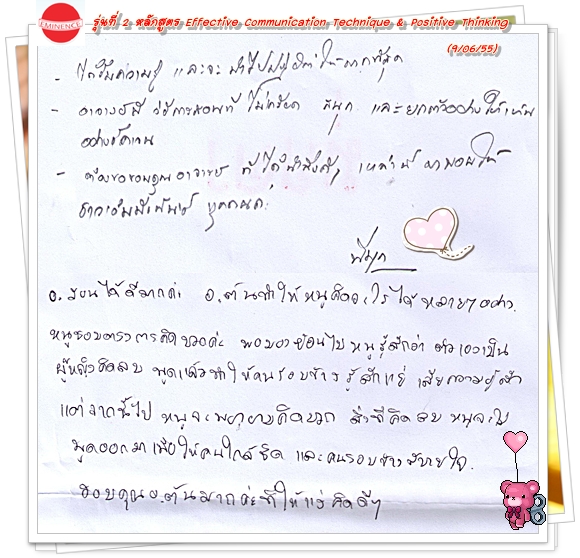 EMINENCE
รุ่นที่ 2 หลักสูตร Effective Communication Technique & Positive Thinking
(9/06/55)
- ได้รับความรู้ และจะนำไปปฏิบัติให้มากที่สุด
- อาจารย์มีวิธีการสอนที่ไม่เครียด สนุก และยกตัวอย่างให้เห็น
อย่างชัดเจน
- ต้องขอขอบคุณอาจารย์ ที่ได้นำสิ่งดีๆ เหล่านี้ มามอบให้
ชาว
อ. สอนได้ดีมากค่ะ อ.ต้นทำให้หนูคิดอะไรได้หลายๆ อย่าง
หนูชอบตรงการคิดบวกค่ะ พอมองย้อนไป หนูรู้สึกว่า ตัวเองเป็น
ผู้หญิงคิดลบ พูดแล้วทำให้คนรอบข้างรู้สึกแย่ เสียความรู้สึก
แต่จากนี้ไป หนูจะพยายามคิดบวก สิ่งที่คิดลบ หนูจะไม่
พูดออกมาเพื่อให้คนใกล้ชิด และคนรอบข้างสบายใจ.
ขอบคุณอ.ต้นมากค่ะที่ให้แง่คิดดีๆ